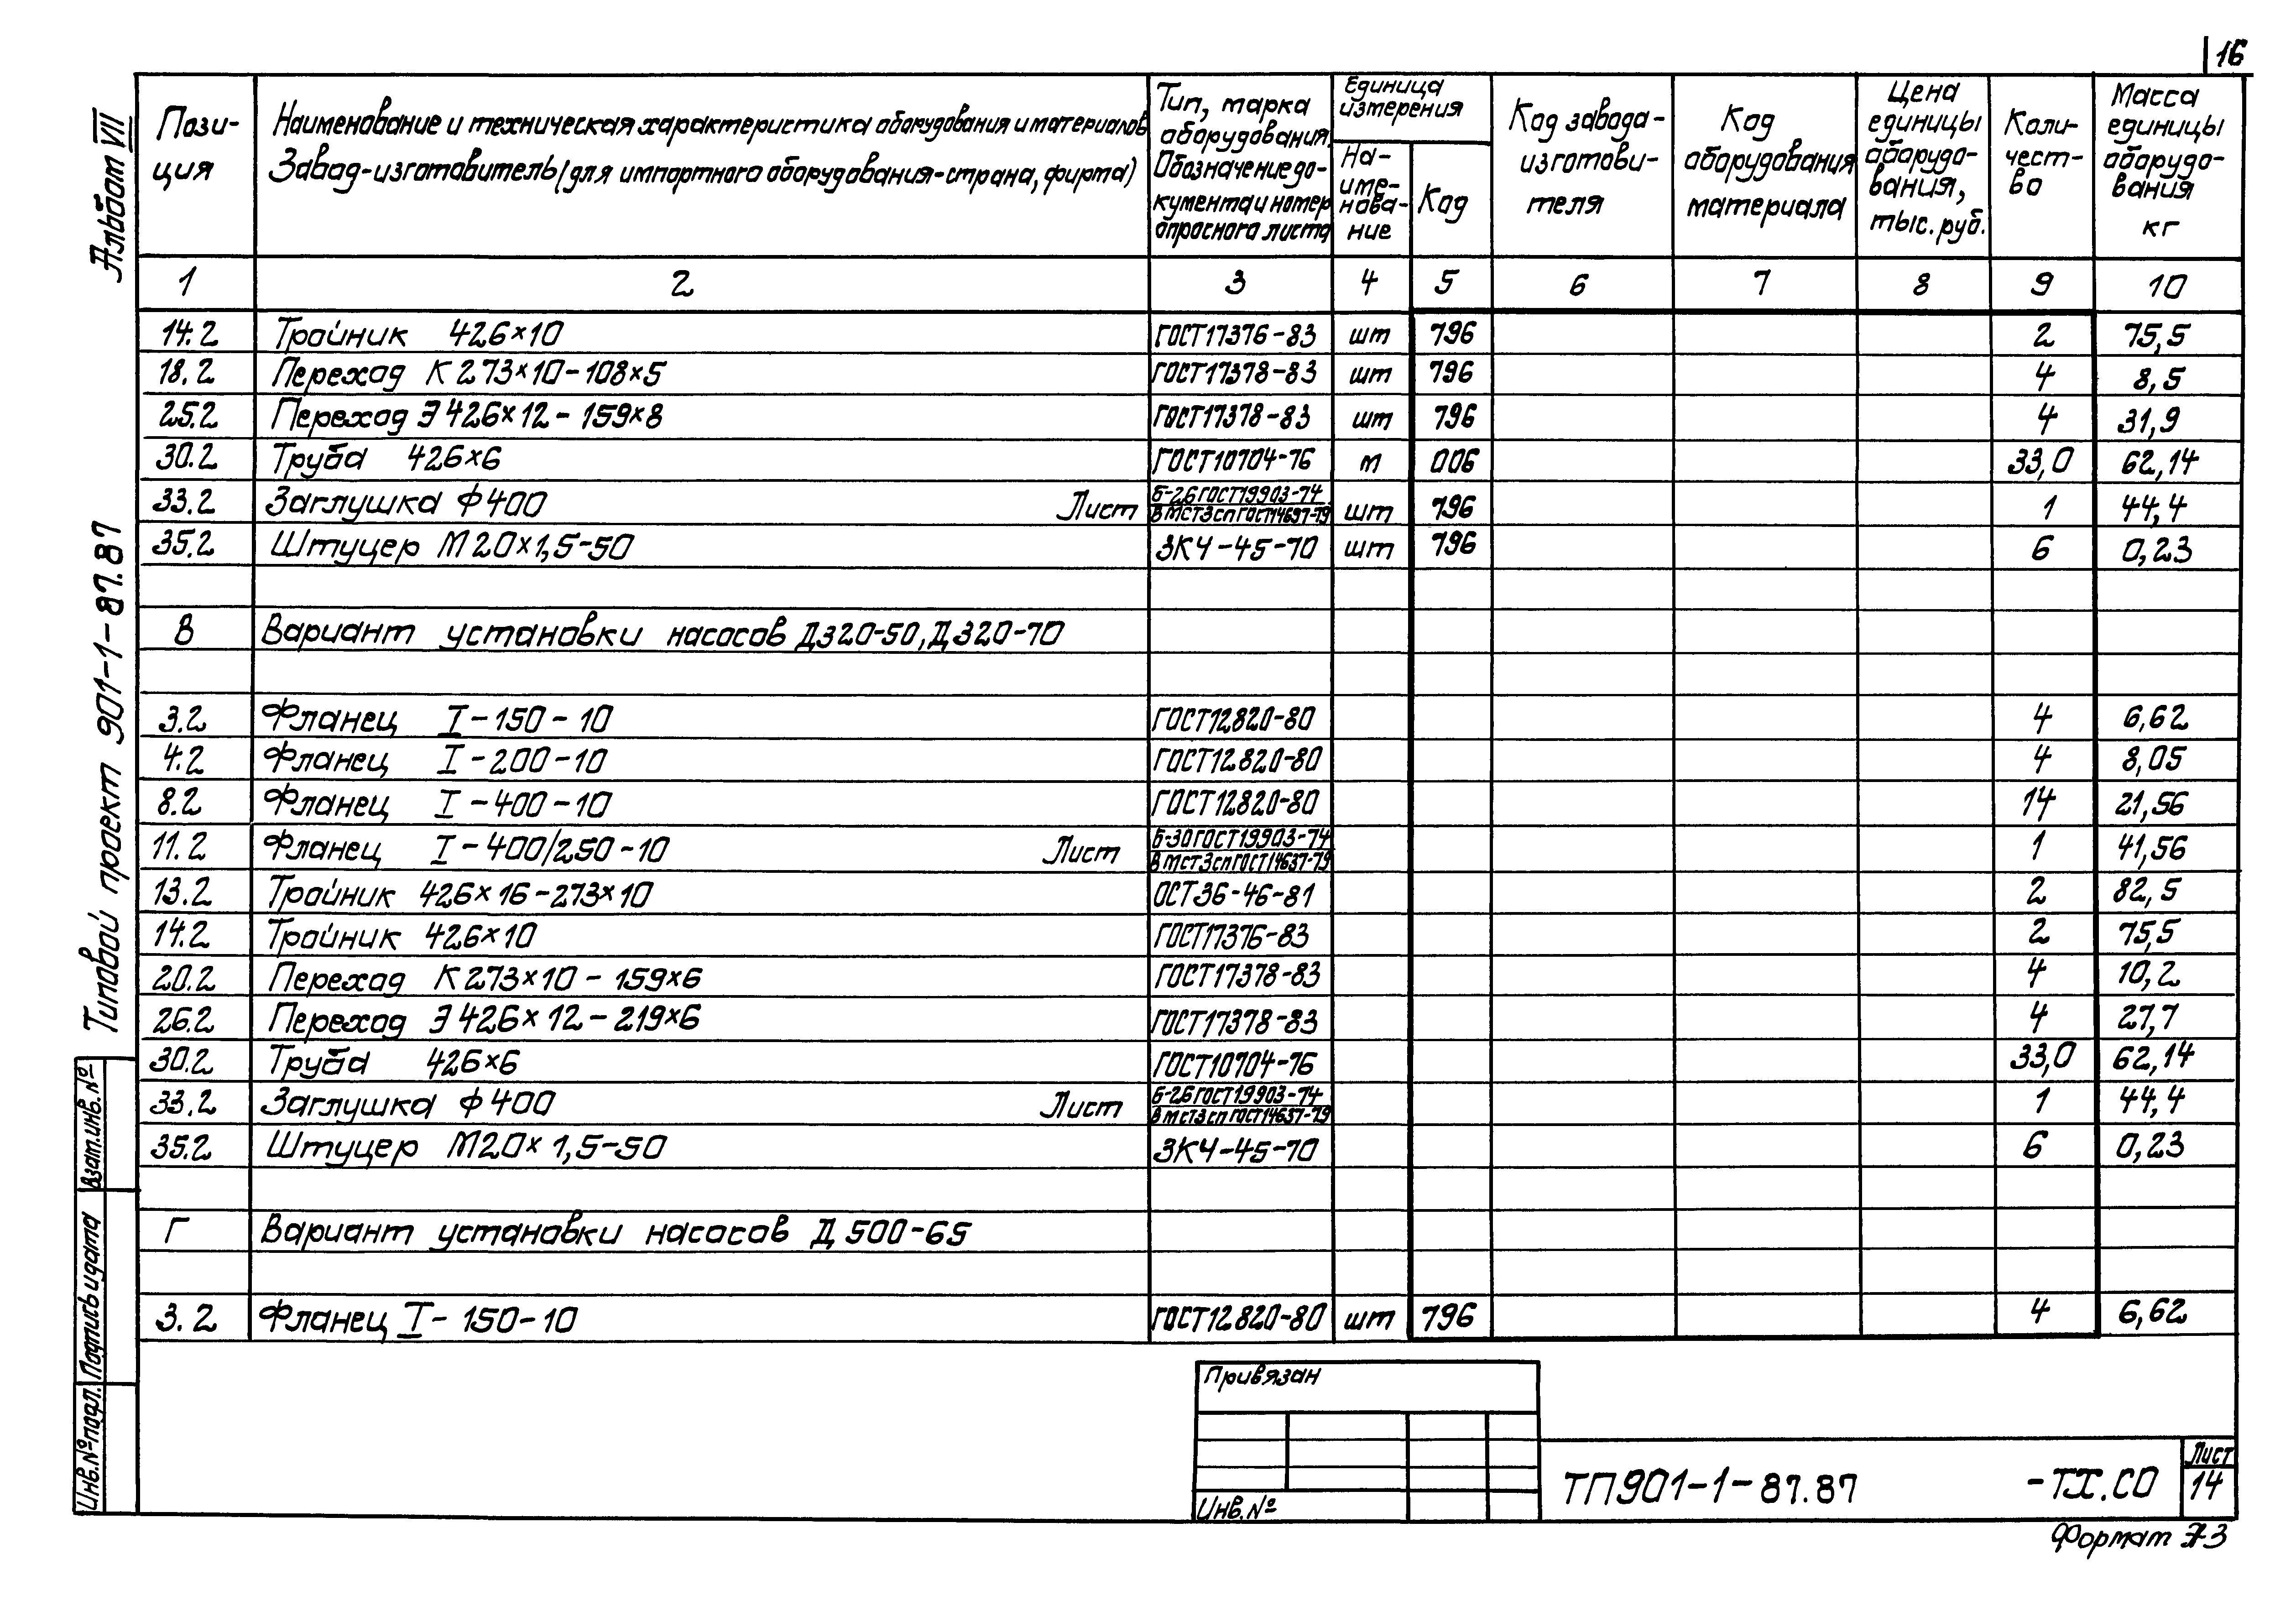 16
Альбом VII
Типовой проект 901-1-87.87
Взам.инв.№
Подпись и дата
Инв.№ подл.
Пози-
ция
Наименование и техническая характеристика оборудования и материалов
Завод-изготовитель (для импортного оборудования-страна, фирма)
Тип, марка
оборудования.
Обозначение до-
кумента и номер
опросного листа
Единица
измерения
На-
име-
нова-
ние
Код
Код завода-
изготови-
теля
Код
оборудования
материала
Цена
единицы
оборудо-
вания,
тыс. руб.
Коли-
чест-
во
Масса
единицы
оборудо-
вания
кг
1 2 3 4 5 6 7 8 9 10
14.2 Тройник 426×10 ГОСТ17376-83 шт 796 2 75,5
18.2 Переход К 273×10-108×5 ГОСТ17378-83 шт 796 4 8,5
25.2 Переход Э 426×12-159×8 ГОСТ17378-83 шт 796 4 31,9
30.2 Труба 426×6 ГОСТ10704-76 м 006 33,0 62,14
33.2 Заглушка ф400 Лист Б-26 ГОСТ19903-74 шт 796 1 44,4
ВМСТ3сп ГОСТ14637-79
35.2 Штуцер М20×1,5-50 ЗКЧ-45-70 шт 796 6 0,23
В Вариант установки насосов Д320-50, Д320-70
3.2 Фланец I-150-10 ГОСТ12820-80 4 6,62
4.2 Фланец I-200-10 ГОСТ12820-80 4 8,05
8.2 Фланец I-400-10 ГОСТ12820-80 14 21,56
11.2 Фланец I-400/250-10 Лист Б-30 ГОСТ19903-74 1 41,56
ВМСТ3сп ГОСТ14637-79
13.2 Тройник 426×16-273×10 ОСТ36-46-81 2 82,5
14.2 Тройник 426×10 ГОСТ17376-83 2 75,5
20.2 Переход К 273×10-159×6 ГОСТ17378-83 4 10,2
26.2 Переход Э 426×12-219×6 ГОСТ17378-83 4 27,7
30.2 Труба 426×6 ГОСТ10704-76 33,0 62,14
33.2 Заглушка ф400 Лист Б-26 ГОСТ19903-74 1 44,4
ВМСТ3сп ГОСТ14637-79
35.2 Штуцер М20×1,5-50 ЗКЧ-45-70 6 0,23
Г Вариант установки насосов Д 500-65
3.2 Фланец I-150-10 ГОСТ12820-80 шт 796 4 6,62
Привязан
Инв.№
ТП901-1-87.87 -ТХ.СО
Лист
14
Формат А3